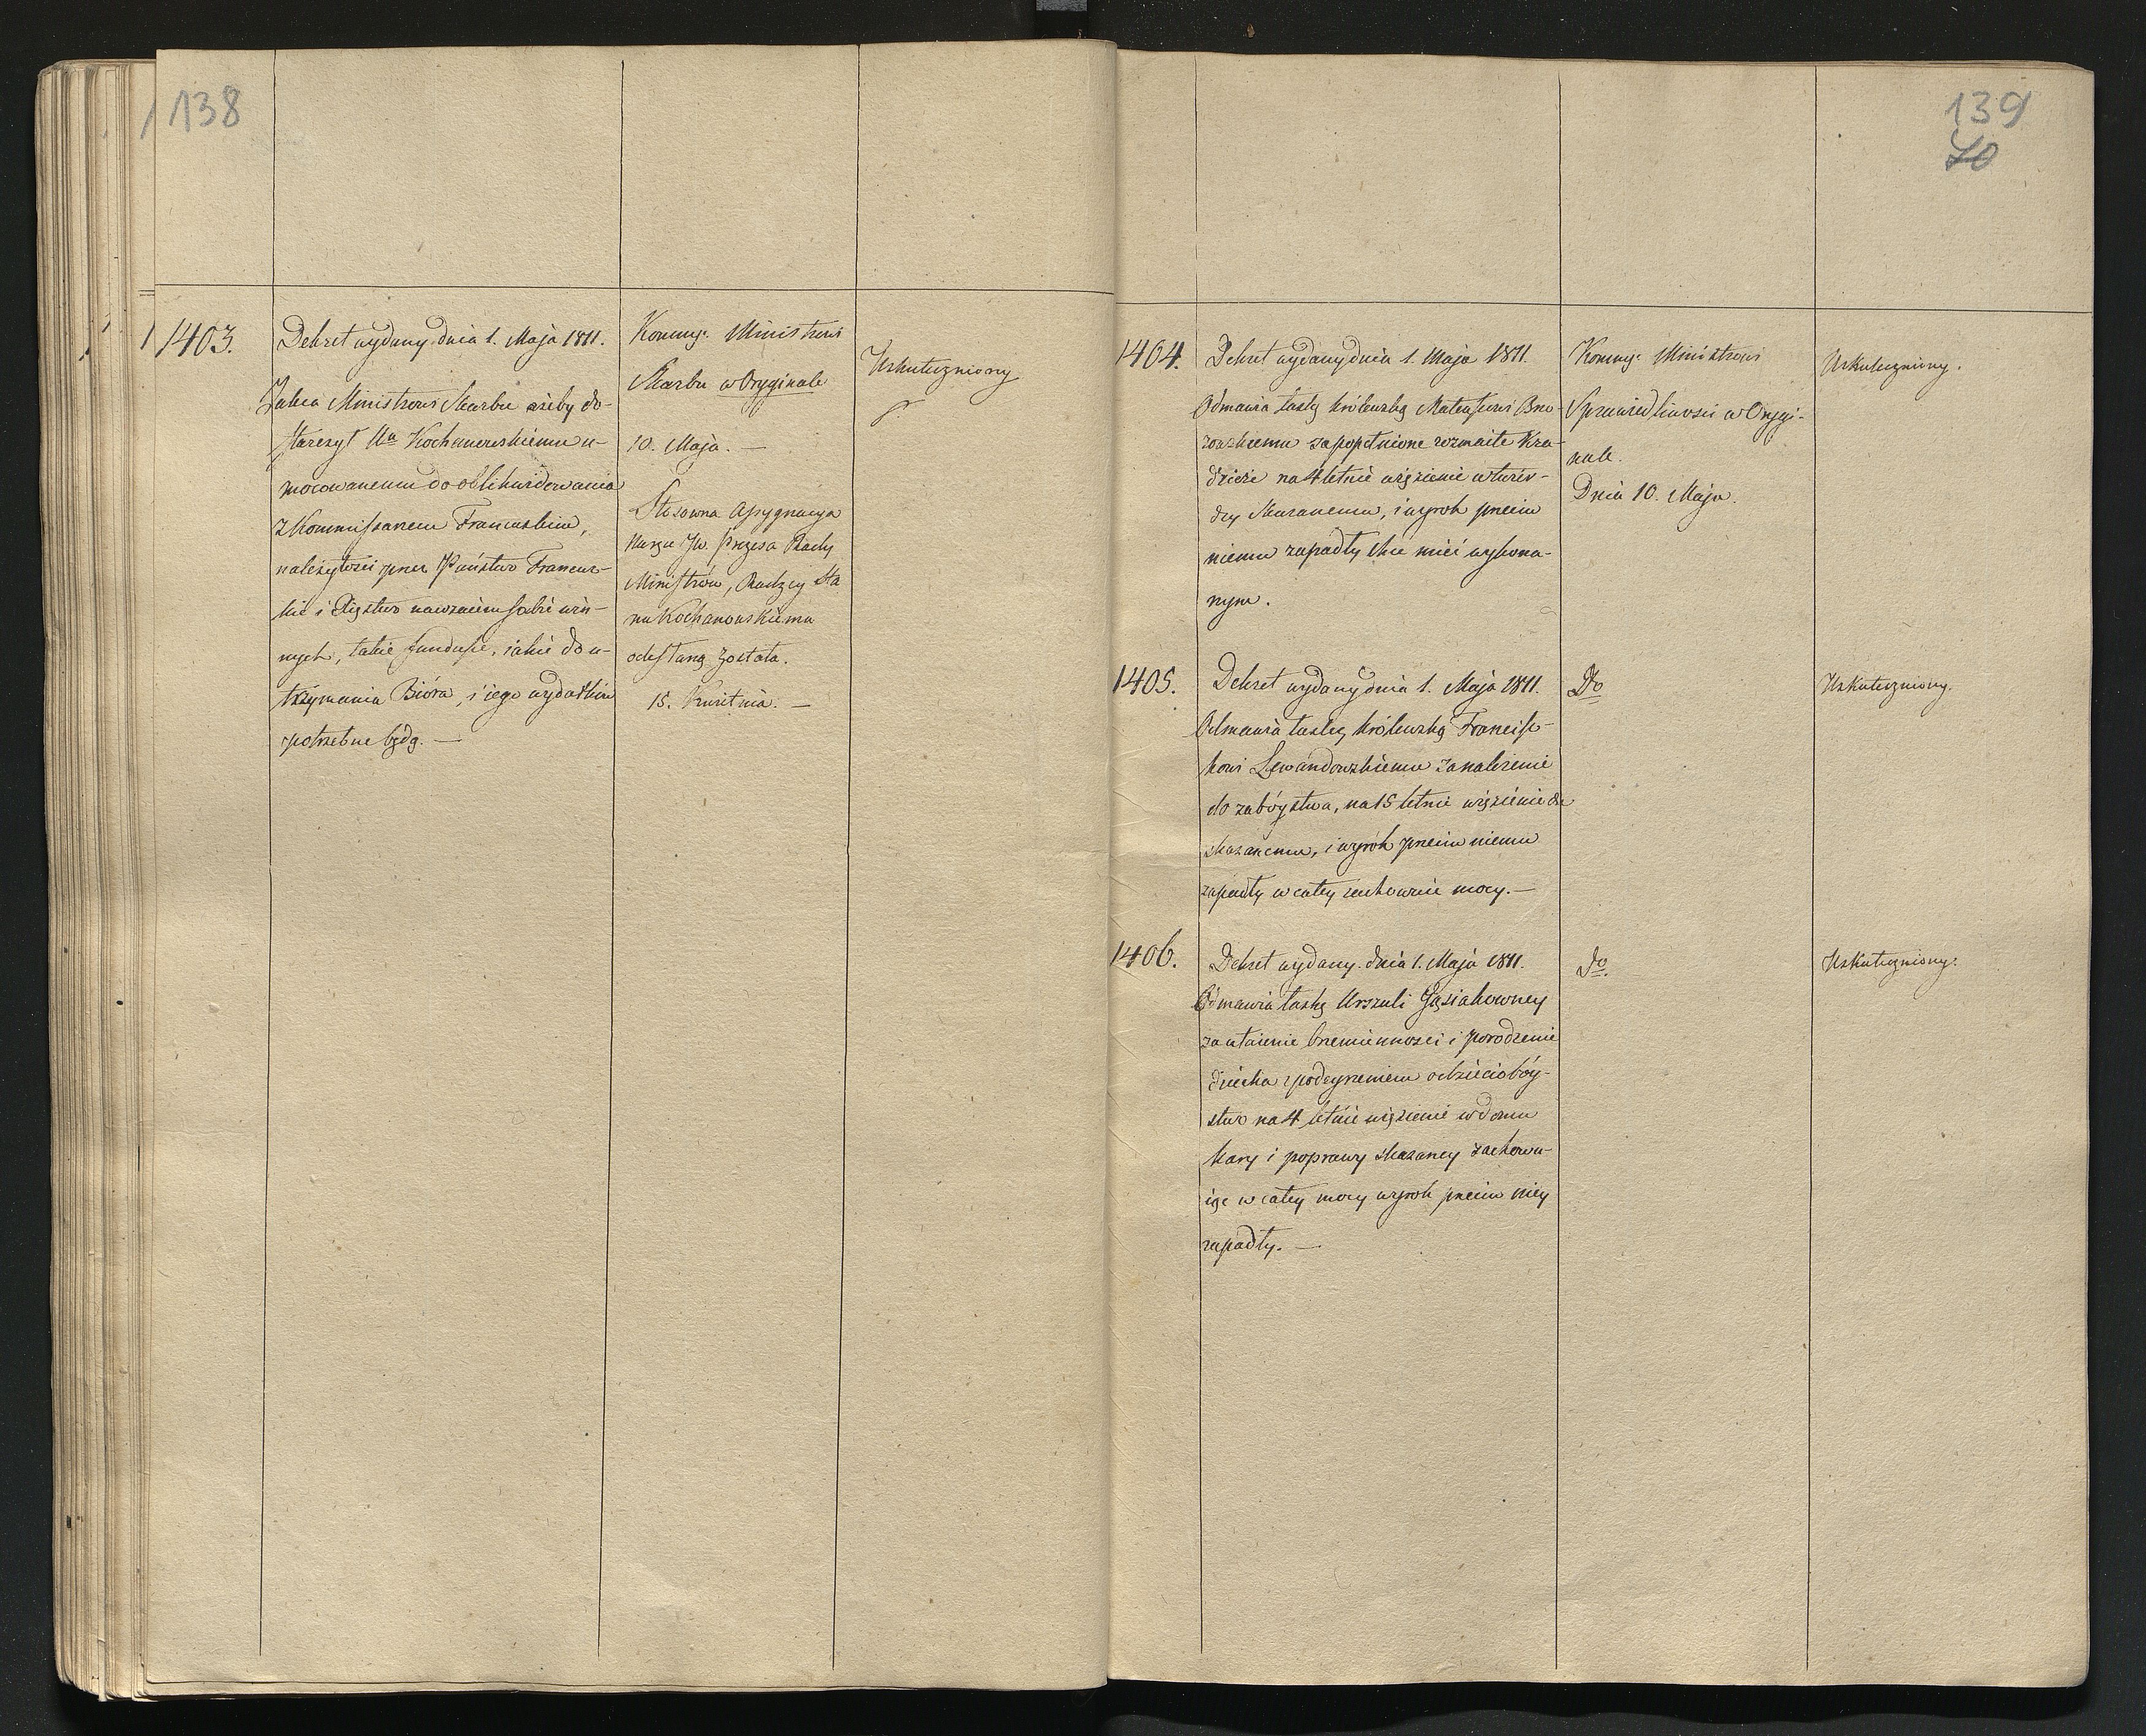 138
1403.
Dekret wydany dnia 1. Maja 1811.
Zaleca Ministrowi Skarbu ażeby do-
starczył Kochanowskiemu u-
mocowanemu do oblikwidowania
z Kommissarzem Francuskim,
należytości przez Państwo Francuz-
kie i Xięstwo nawzaiem sobie win-
nych, takie fundusze, iakie do u-
trzymania Bióra, i iego wydatków
potrzebne będą. —
Kommu: Ministrowi
Skarbu w Oryginale
10. Maja. —
Stosowna Assygnacya
Prezesa Rady
Ministrów, Radzcy Sta
nu Kochanowskiemu
odesłaną została.
15. Kwietnia. —
Uskuteczniony
139
70
1404.
Dekret wydany dnia 1. Maja 1811.
Odmawia łaskę królewską Mateuszowi Brzo-
zowskiemu za popełnione rozmaite Kra-
dzieże na 4 letnie więzienie w twier-
dzy Skazanemu, i wyrok przeciw
niemu zapadły chce mieć wykona-
nym.
Kommu: Ministrowi
Sprawiedliwości w Orygi-
nale.
Dnia 10. Maja.
Uskuteczniony.
1405.
Dekret wydany dnia 1. Maja 1811.
Odmawia łaskę królewską Francisz-
kowi Lewandowskiemu za należenie
do zabóystwa, na 15 letnie więzienie
skazanemu, i wyrok przeciw niemu
zapadły w całey zachowuie mocy. —
Do
Uskuteczniony.
1406.
Dekret wydany dnia 1. Maja 1811.
Odmawia łaskę Urszuli Gąsiakowney
za utaienie brzemienności i porodzenie
dziecka z podeyrzeniem o dzieciobóy-
stwo na 4 letnie więzienie w domu
kary i poprawy skazaney zachowu-
iąc w całey mocy wyrok przeciw niey
zapadły. —
Do.
Uskuteczniony.